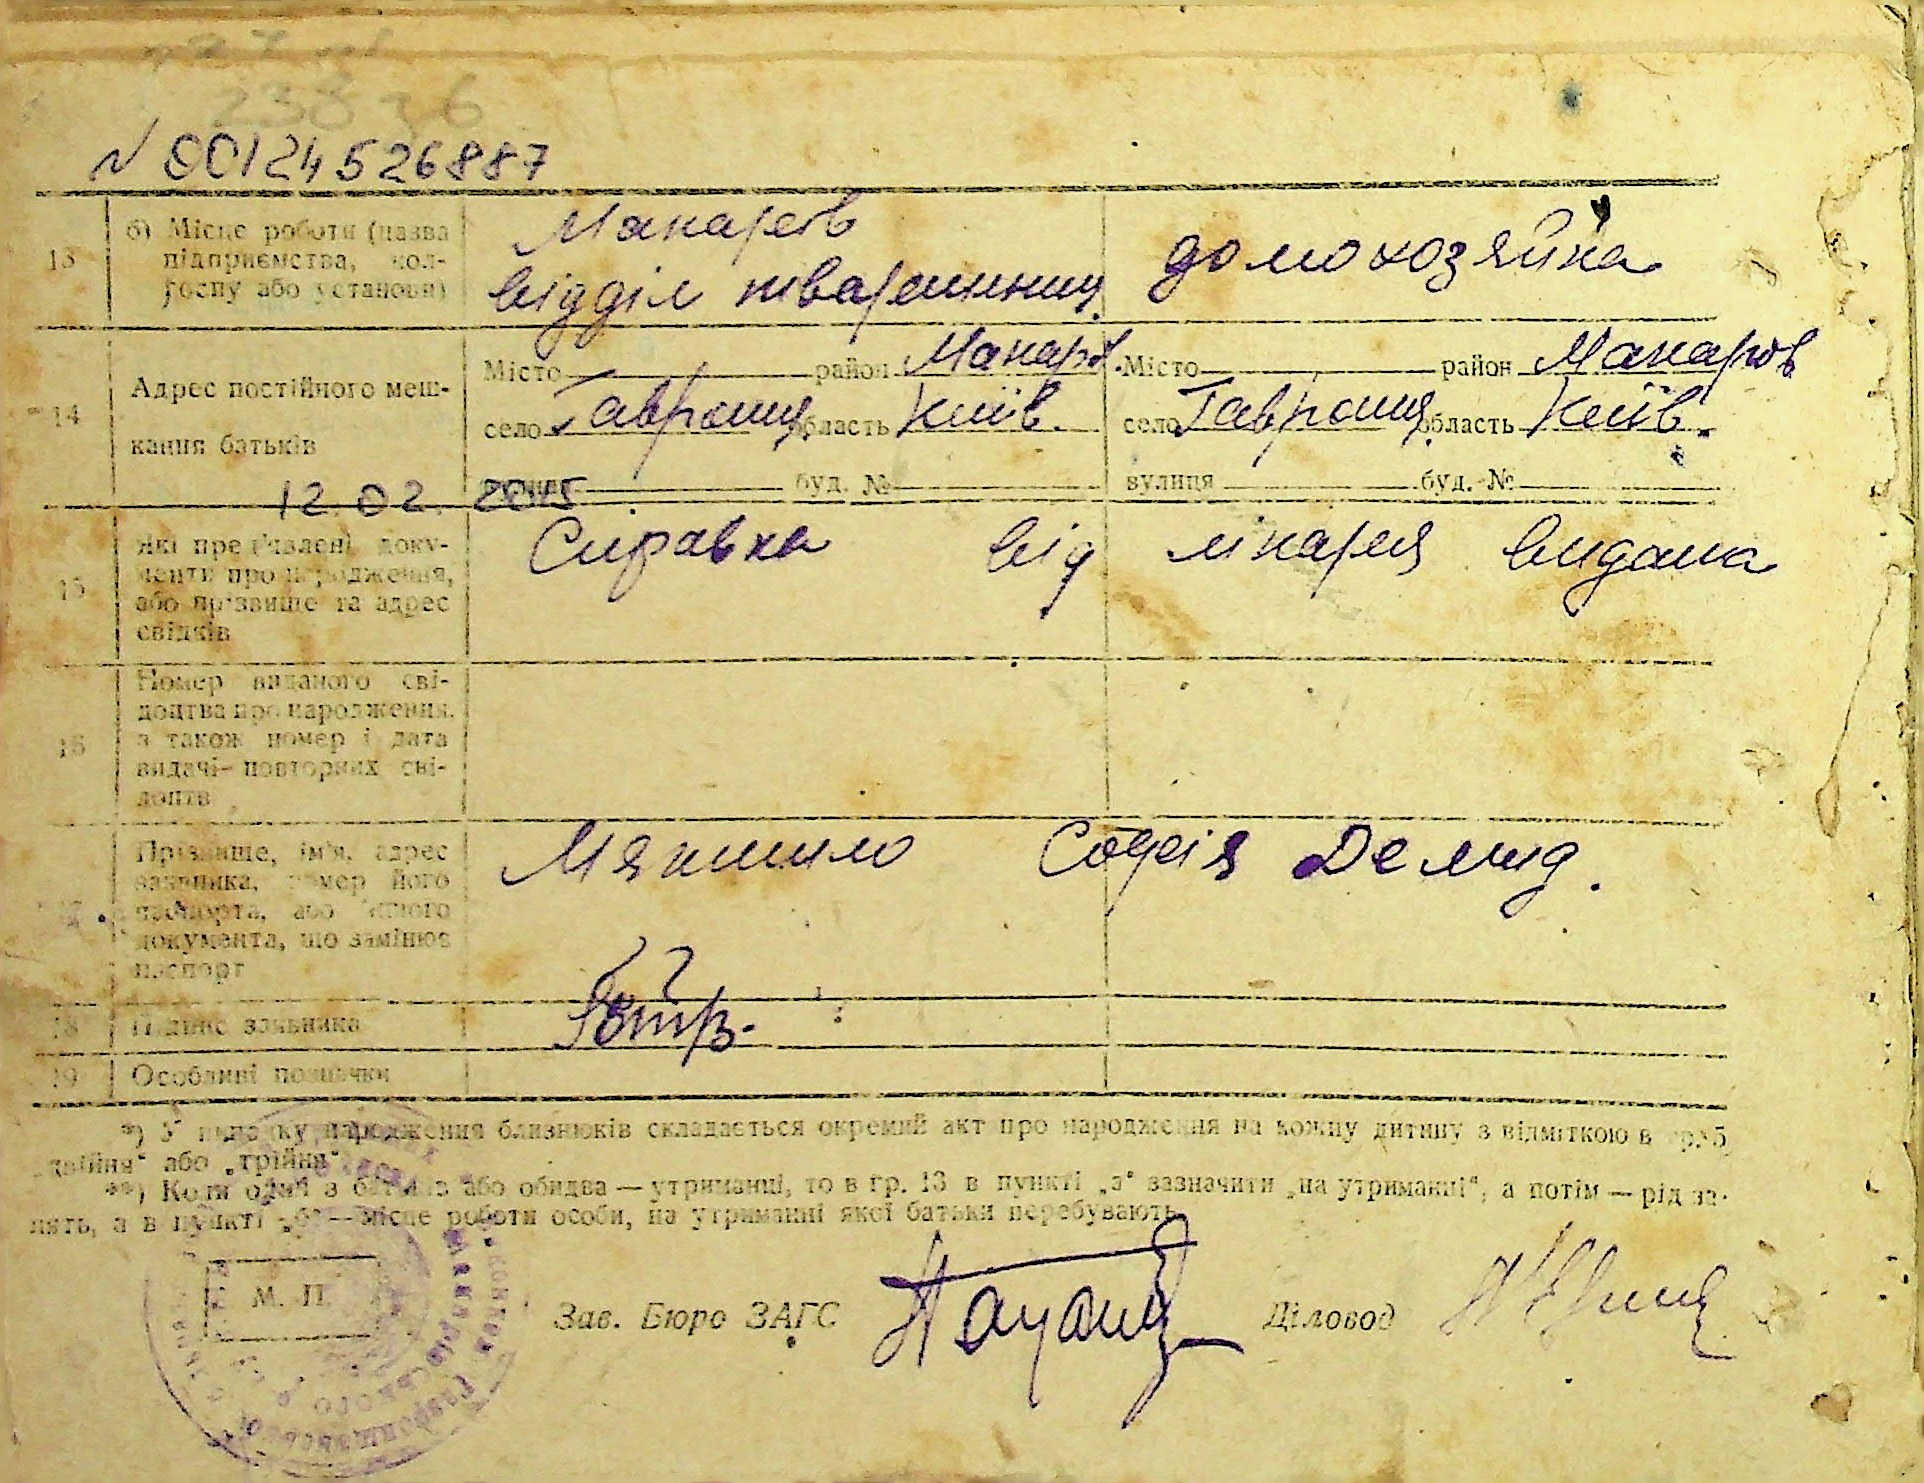 N 00124526887
13 б) Місце роботи (назва підприємства, колгоспу або установи)
Макарів
відділ тваринниц.
домохозяйка
14 Адрес постійного мешкання батьків
Місто район Макарів.
село Гаврониц. область Київ.
буд. №
Місто район Макаров
село Гаврониц область Київ.
вулиця буд. №
12 02 2015
15 Які пред'явлені документи про народження, або прізвище та адрес свідків
Справка від лікаря видана
16 Номер виданого свідоцтва про народження, а також номер і дата видачі повторних свідоцтв
17 Прізвище, ім'я, адрес заявника, номер його паспорта, або іншого документа, що замінює паспорт
Софія Демид.
18 Підпис заявника
19 Особливі позначки
*) У випадку народження близнюків складається окремий акт про народження на кожну дитину з відміткою в гр. 5
„двійня" або „трійня".
**) Коли один з батьків або обидва — утриманці, то в гр. 13 в пункті „а" зазначити „на утриманні", а потім — рід за-
нять, а в пункті „б" — місце роботи особи, на утриманні якої батьки перебувають.
М. П.
Зав. Бюро ЗАГС
Діловод